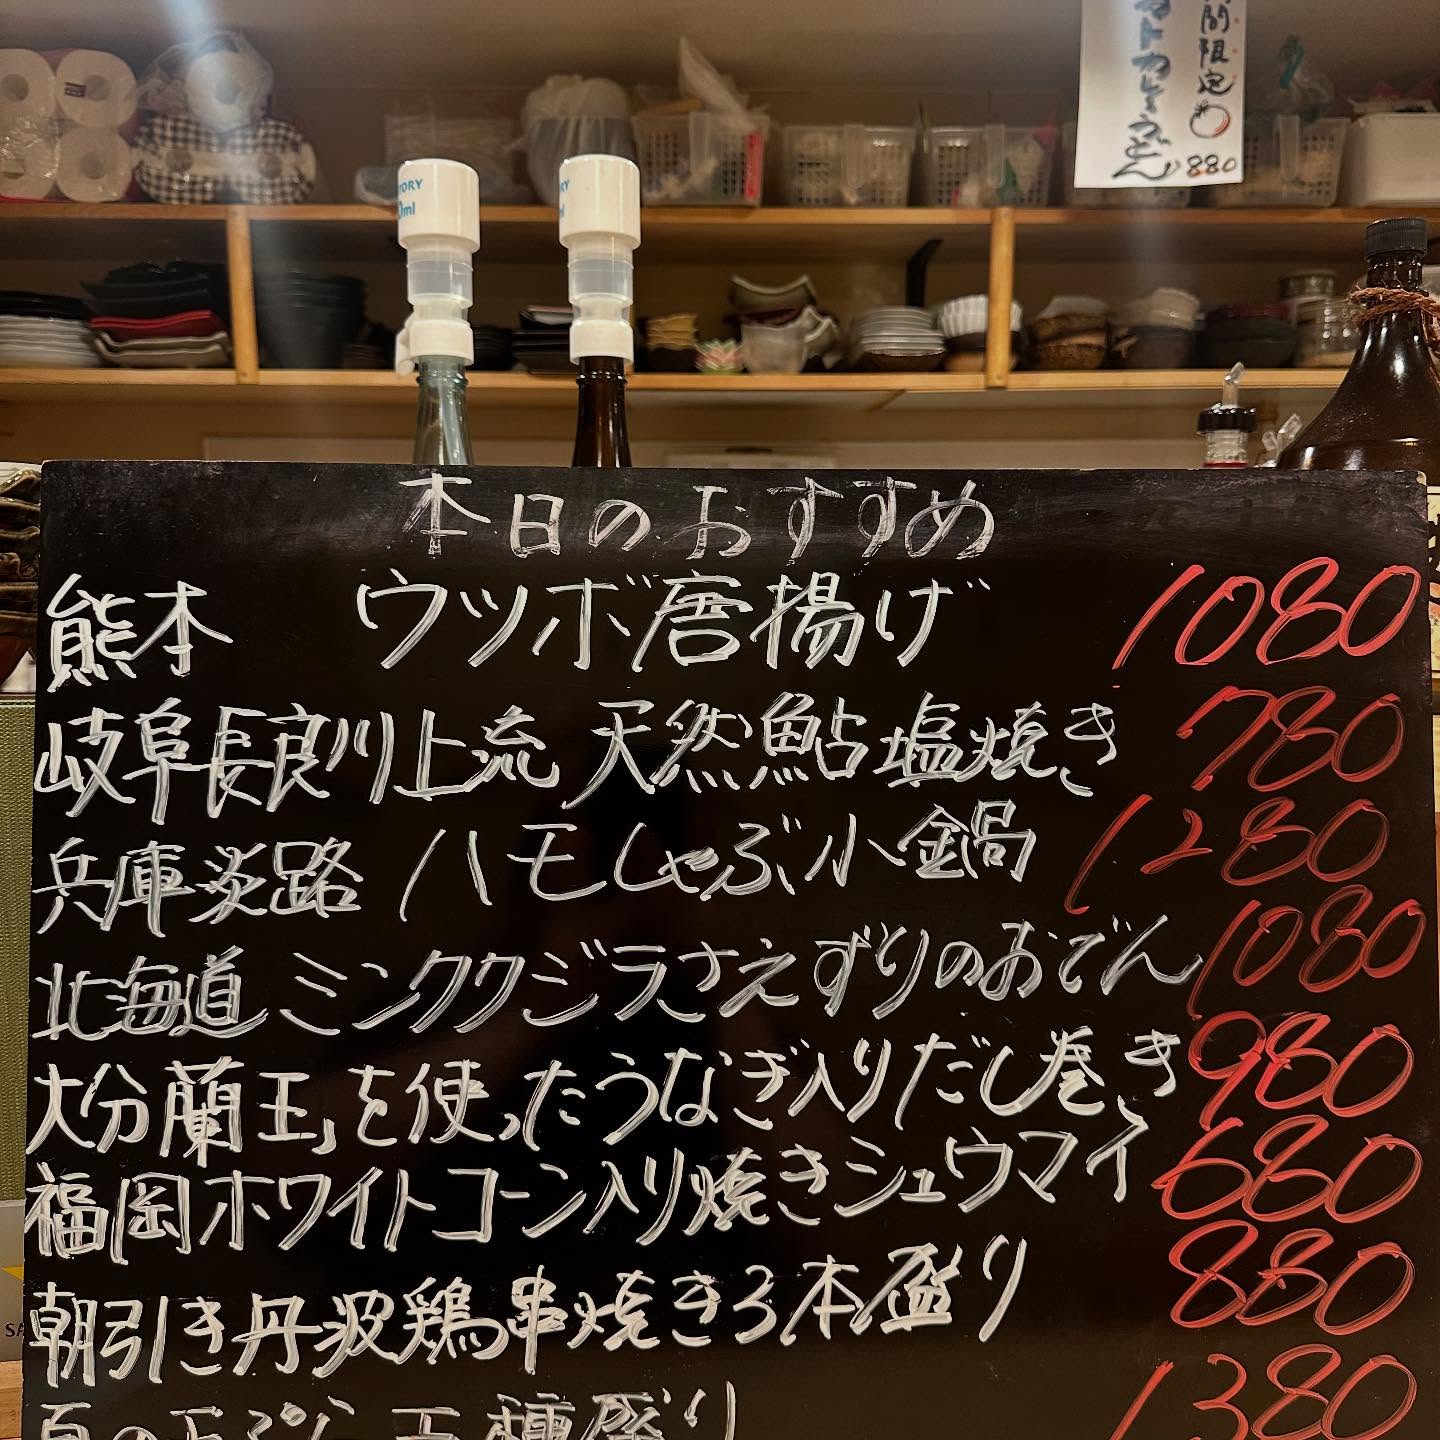 間限定
トカレーうどん
880
本日のおすすめ
熊本 ウツボ唐揚げ 1080
岐阜長良川上流 天然鮎塩焼き 780
兵庫淡路 ハモしゃぶ小鍋 1280
北海道 ミンククジラさえずりのおでん 1080
大分蘭王を使ったうなぎ入りだし巻き 980
福岡ホワイトコーン入り焼きシュウマイ 680
朝引き丹波鶏串焼き3本盛り 880
夏の天ぷら五種盛り 1380